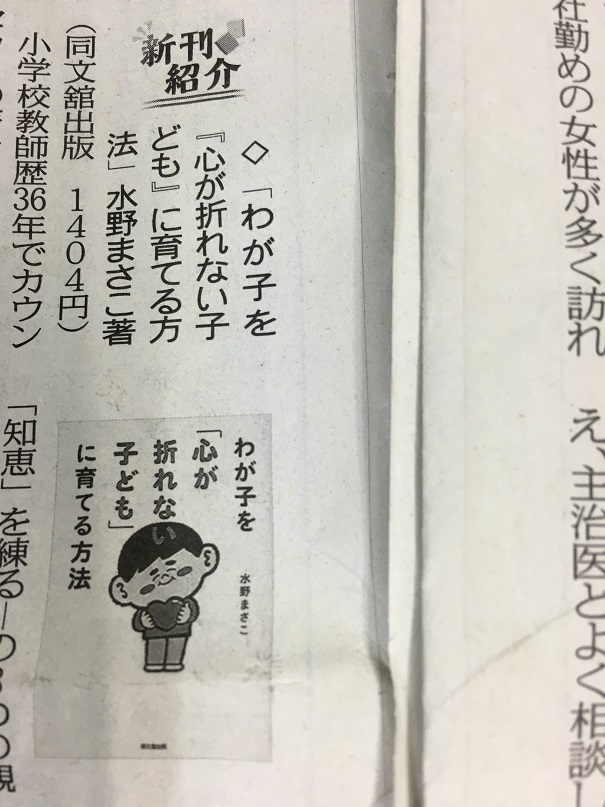 社勤めの女性が多く訪れ
え、主治医とよく相談し
新刊
紹介
◇「わが子を
『心が折れない子
ども』に育てる方
法」水野まさこ著
（同文舘出版　1404円）
小学校教師歴36年でカウン
わが子を
「心が
折れない
子ども」
に育てる方法
水野まさこ
「知恵」を練る―の3つの視